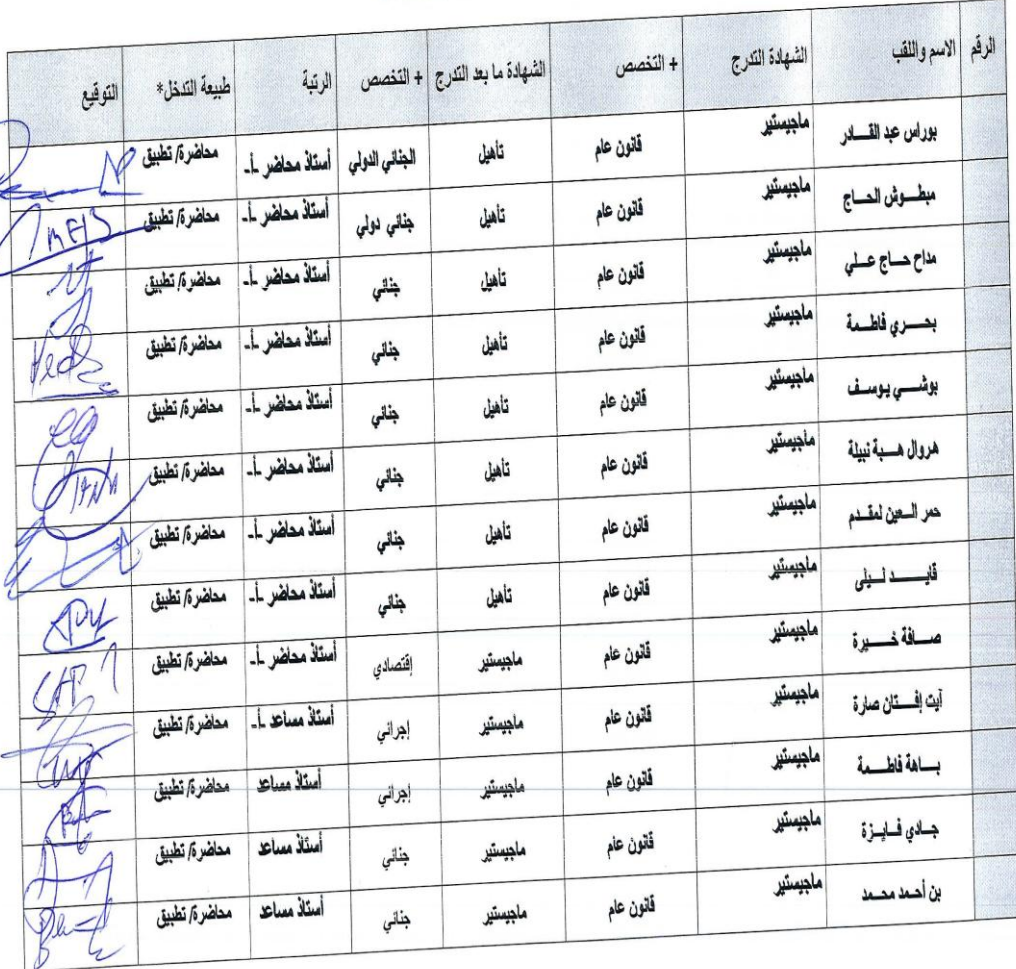 الرقم الاسم واللقب الشهادة التدرج + التخصص الشهادة ما بعد التدرج + التخصص الرتبة طبيعة التدخل* التوقيع
بوراس عبد القادر ماجيستير قانون عام تأهيل الجنائي الدولي أستاذ محاضر ـأـ محاضرة/ تطبيق
مبطوش الحاج ماجيستير قانون عام تأهيل جنائي دولي أستاذ محاضر ـأـ محاضرة/ تطبيق
مداح حاج علي ماجيستير قانون عام تأهيل جنائي أستاذ محاضر ـأـ محاضرة/ تطبيق
بحري فاطمة ماجيستير قانون عام تأهيل جنائي أستاذ محاضر ـأـ محاضرة/ تطبيق
بوشي يوسف ماجيستير قانون عام تأهيل جنائي أستاذ محاضر ـأـ محاضرة/ تطبيق
هروال هبة نبيلة ماجيستير قانون عام تأهيل جنائي أستاذ محاضر ـأـ محاضرة/ تطبيق
حمر العين لمقدم ماجيستير قانون عام تأهيل جنائي أستاذ محاضر ـأـ محاضرة/ تطبيق
قايد ليلى ماجيستير قانون عام تأهيل جنائي أستاذ محاضر ـأـ محاضرة/ تطبيق
صافة خيرة ماجيستير قانون عام ماجيستير إقتصادي أستاذ محاضر ـأـ محاضرة/ تطبيق
آيت إفتان صارة ماجيستير قانون عام ماجيستير إجرائي أستاذ مساعد ـأـ محاضرة/ تطبيق
باهة فاطمة ماجيستير قانون عام ماجيستير إجرائي أستاذ مساعد محاضرة/ تطبيق
جادي فايزة ماجيستير قانون عام ماجيستير جنائي أستاذ مساعد محاضرة/ تطبيق
بن أحمد محمد ماجيستير قانون عام ماجيستير جنائي أستاذ مساعد محاضرة/ تطبيق